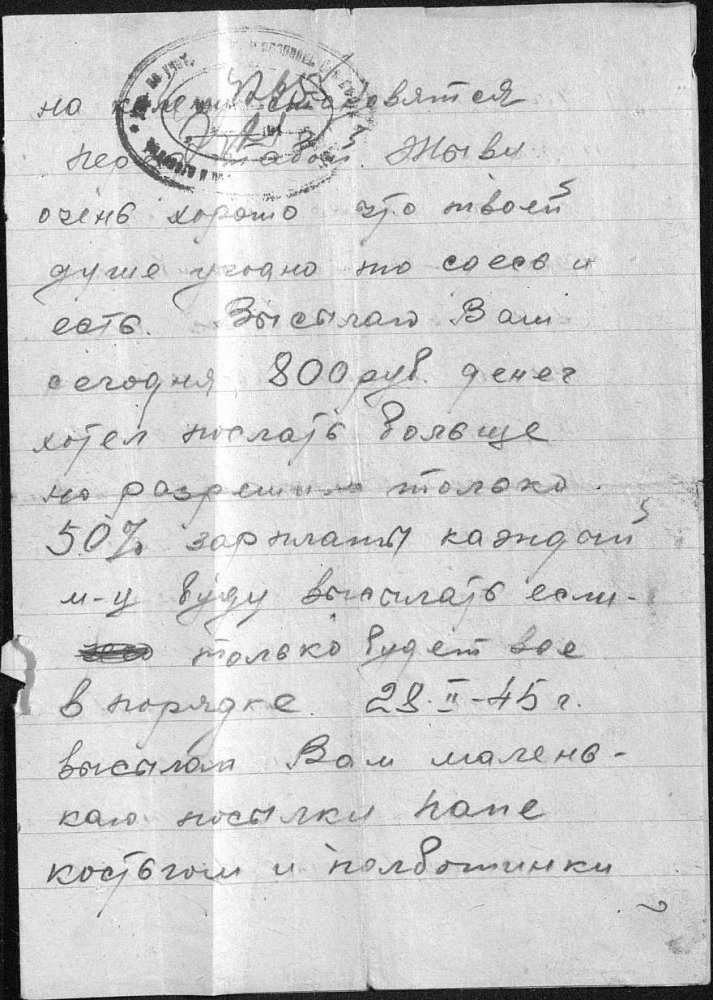 на колени становятся
перед табой. Жыви
очень хорошо что твоей
душе угодно то
есть. Высылаю Вам
сегодня 800 руб. денег
хотел послать больще
но разрешили только
50% зарплаты каждый
м-ц буду высылать если-
только будет все
в порядке. 28.II-45 г.
высылаю Вам малень-
каю посылки папе
костюм и полботинки